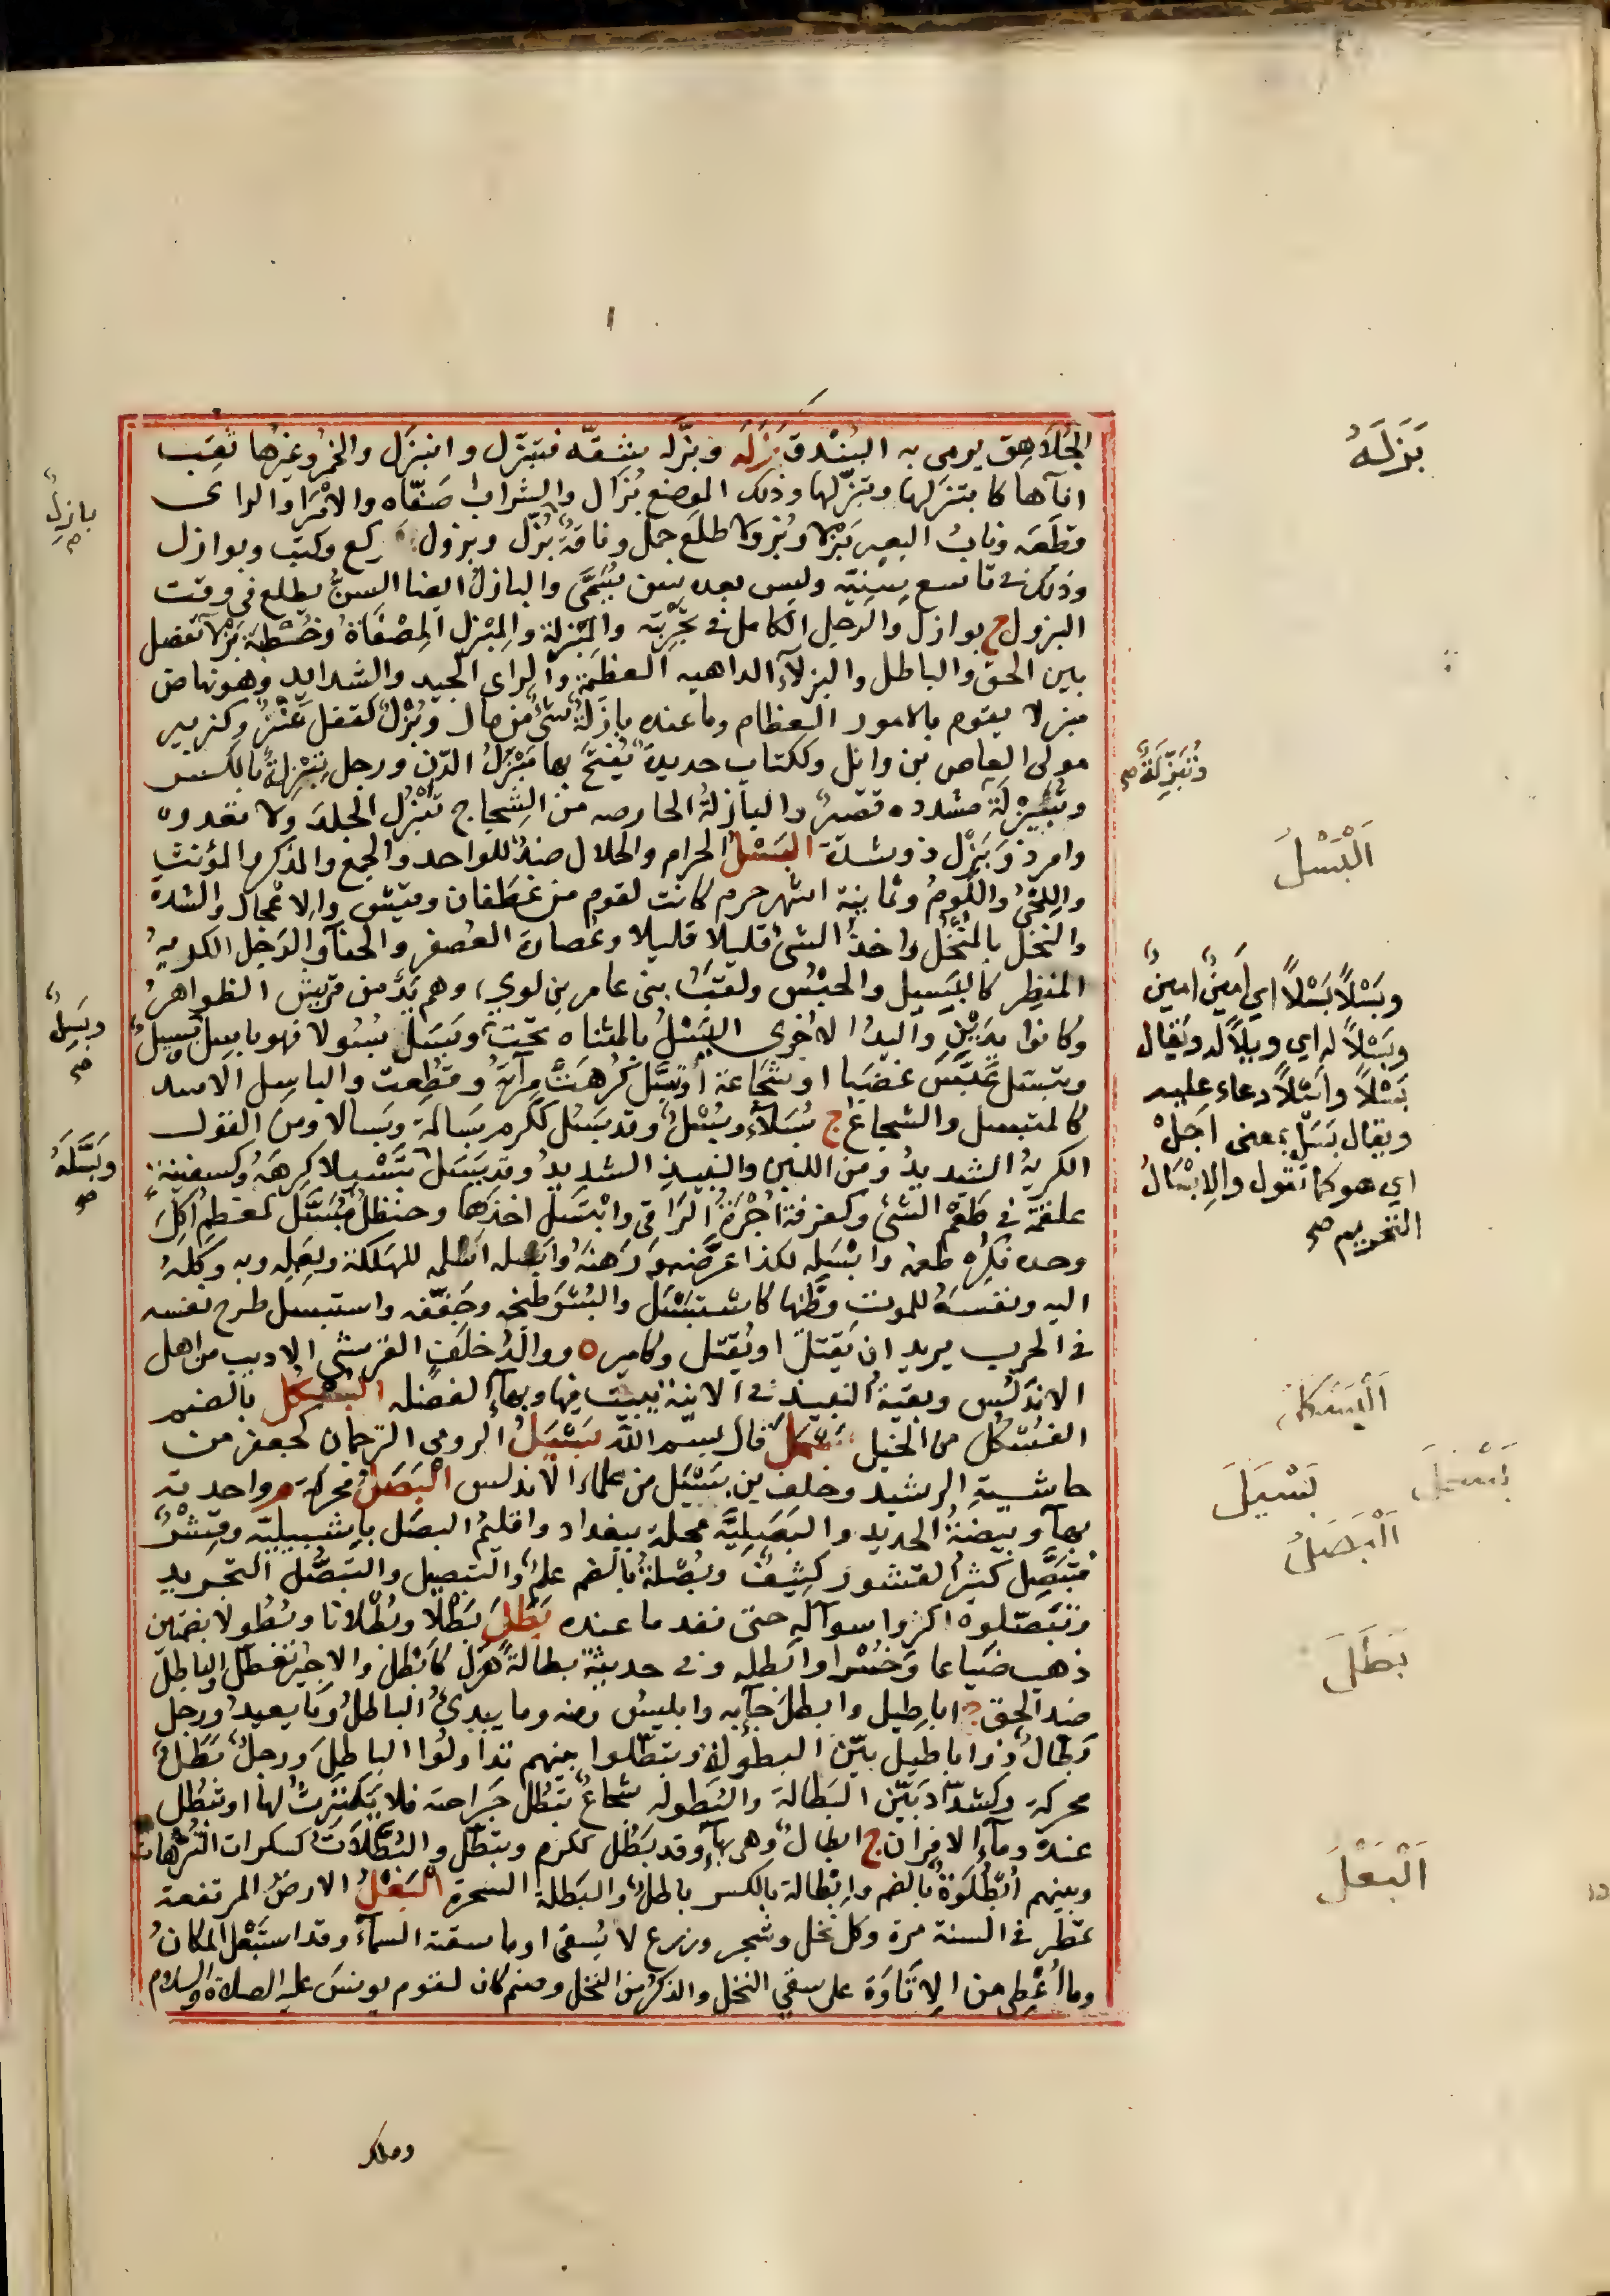 الجُلَاهِق يومى به البُنْدق بَزَلَه وبزّله بشقّه فتبزّل وانبزَل والخمر وغيرها ثقب
اناءها كابتزلها وتبزّلها وذلك الموضع بُزَال والشراب صَفّاه والامرَ والراى
قطَعه ونابُ البعير بَزْلا وبُزولا طلع جمل وناقة بُزّل وبزول ركع وكتب وبوازل
وذلك فى تاسع سِنِيّه وليس بعده سِن تُسَمَّى والبازل ايضا السنُّ يطلع فى وقت
البزول ج بوازل والرجل الكامل فى تجربته والمِبْزلة والمِبْزل المِصْفَاة وخُطّة بَزْلاء تفصل
بين الحق والباطل والبزلاء الداهيه العظيمة والراى الجيد والشدايد وهو نهاض
ببزلا يقوم بالامور العظام وما عنده بازلة شئ من مال وبُزْل كقفل عَنْز وكزبير
مولى العاص بن وائل وككتاب حديدة يُفتح بها مَبْزَل الدّن ورجل تِبْزِلة بالكسر
وتُبَيْزِلَة مشدده قصير والبازلة الحارصه من الشِجاج تَبْزُل الجلدَ ولا تعدوه
وامر ذو بَزْل ذو شدة البَسْل الحرام والحلال ضد للواحد والجمع والمذكر والمؤنث
واللحْى واللومُ وثمانية اشهر حرم كانت لقوم من غطَفان وقيس والاعْجال والشدة
والنخل بالمُنْخُل واخذ الشئ قليلا قليلا وعُصارة العُصفر والحنآ والرجل الكريهُ
المنظِر كالبَسِيل والحبْس ولقبُ بنى عامر بن لوي وهم يَدٌ من قريش الظواهرُ
وكانوا يدَيْن واليد الاخرى اليَسْل بالمثناه تحت وبَسَل بُسُولا فهو باسِل وبسِيل
وتبسّل عَبَسَ غضبا او شجاعة او تبسّل كَرُهت مِرآته وفظِعت والباسِل الاسد
كالمتبسل والشجاع ج بُسَلآء وبُسْل وقد بَسُل ككرم بَسالة وبَسالا ومن القول
الكريهُ الشديدُ ومن اللبن والنبيذ الشديدُ وقد بسّل تَبْسِيلا كرِهَهُ وكسفينة
علقمة فى طعْم الشئ وكغرفة اُجْرَةُ الرّاقى وابْتَسَل اخذها وحنظل مُبَسَّل كمعظم اُكِلَ
وحده فكُرِه طعمه وابْسَله لكذا عرّضه ورَهَنهُ وابسله اسلمه للهلكة ولِعمله وبه وكَلَهُ
اليه ونفسَهُ للموت وطّنها كاستبْسَل والبُسْرَ طبخه وجَفّفه واستبسل طرح نفسه
فى الحرب يريد ان يَقتل او يُقتل وكامير ه ووالدُ خلف القرشى الاديب من اهل
الاندلس وبقية النبيذ فى الانية يبيت فيها وبهآء الفضله البُسْكُل بالضم
الفُسْكُل من الخيل بَسْمَلَ قال بسم الله بَسْيَل الرومى الترجمان كجعفر من
حاشية الرشيد وخلف بن بَسْيَل من علماء الاندلس البَصَل محركة م واحدته
بهآء وبيضةُ الحديد والبَصَلِيَّة محلة ببغداد واقليمُ البصل بإشبيلية وقِشْر
مُتبَصِّل كثير القشور كثيف وبُصَلة بالضم علم والتبصيل والتبصُّل التجريد
وتبَصّلوه اكثروا سوآله حتى نفد ما عنده بَطَلَ بُطْلا وبُطْلانا وبُطُولا بضمهن
ذهب ضَياعا وخُسْرا وابطله وفى حديثه بطالة هزل كابْطل والاجيرُ تعطل والباطل
ضد الحق ج اباطيل وابطل جآء به وابليسُ ومنه وما يبدئُ الباطلُ وما يعيدُ ورجل
بَطال ذو اباطيل بيّن البطوله وتبطّلوا بينهم تداولوا الباطلَ ورجلٌ بَطَل
محركة وكشدّاد بَيّن البَطالة والبَطوله شُجاع تبْطُل جَراحته فلا يَكترث لها او تبطُل
عنده دمآء الاقران ج ابطال وهى بهآء وقد بَطُل ككرم وتبطّل والبُطَّلاتُ كسكرات التُرّهات
وبينهم اُبْطُلوة بالضم وإبْطالة بالكسر باطل والبَطَلة السحرة البَعْل الارض المرتفعة
تمطر فى السنة مرة وكل نخل وشجر وزرع لا يُسقى او ما سقته السماء وقد استَبْعل المكانُ
وما اُعْطِى من الإتَاوَة على سقى النخل والذكر من النخل وصنم كان لقوم يونسَ عليه الصلاة والسلام
وملك
بَزَلَهُ
وتُبَيْزِلَة صح
اَلْبَسْلُ
وبَسْلاً بَسْلاً اي اَمِينَ امِينَ
وبَسْلاً له اي ويلاً له ويقال
بَسْلاً واَسْلاً دعاء عليه
ويقال بَسَلْ بمعنى اَجَلْ
اي هو كما تقول والاِبْسَالُ
التحريم صح
اَلْبُسْكُلُ
بَسْمَلَ
بَسْيَلَ
اَلْبَصَلُ
بَطَلَ
اَلْبَعْلُ
بازل صح
وبَسِلٌ صح
وبَسَّلَهُ صح